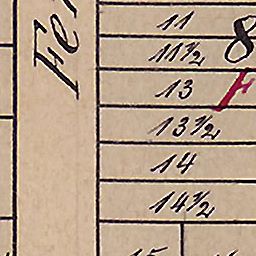 11
11½ 8
13 F
13½
14
14½
15